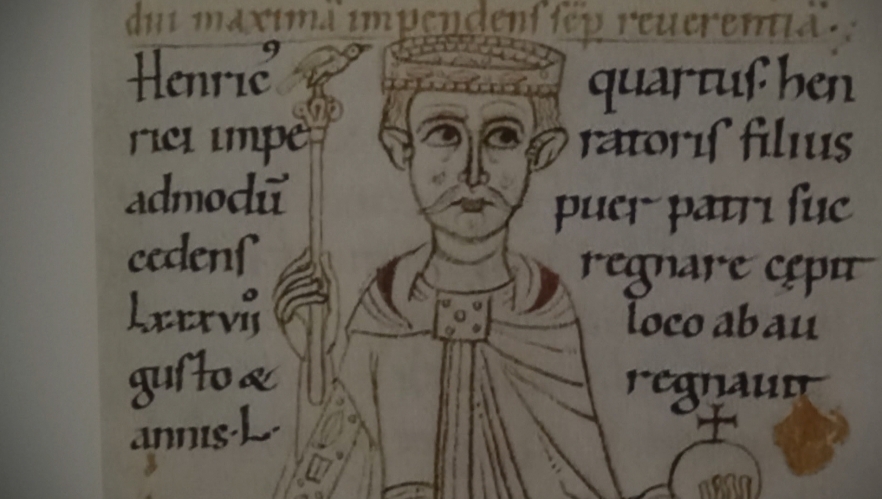 dni maximā impendens sep̄ reuerentiā.
Henricꝰ quartus. hen
rici impe ratoris filius
admodū puer patri suc
cedens regnare cępit
lxxxvijº loco ab au
gusto & regnauit
annis. L.